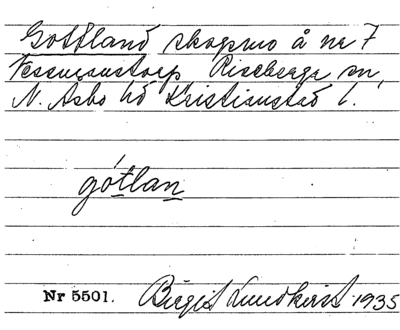 Gottland skogsmo å nr 7
Riseberga sn,
N. Åsbo hd Kristianstad l.
gótlan
Nr 5501. Birgit Lundkvist 1935